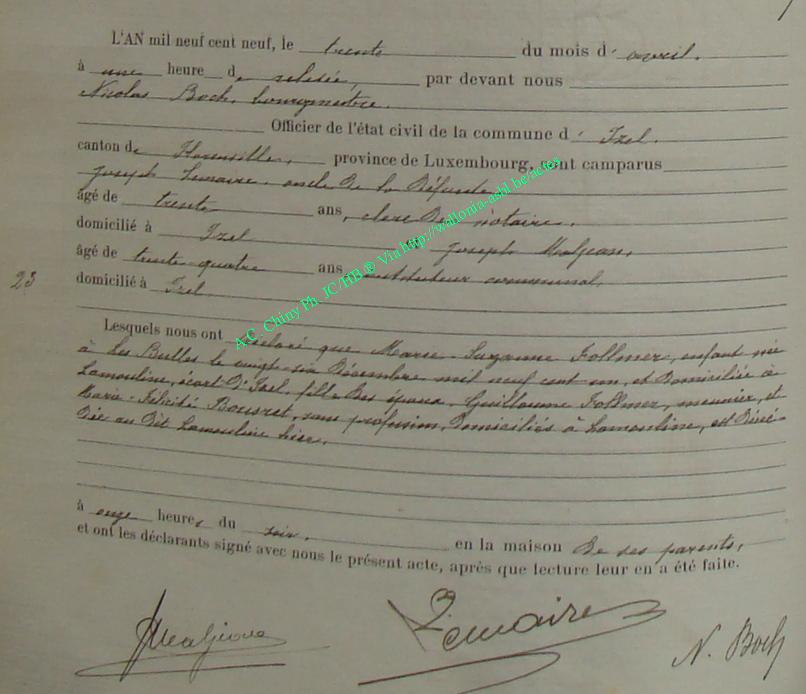 L'AN mil neuf cent neuf, le trente du mois d' avril.
à une heure de relevée, par devant nous
Nicolas Boch, bourgmestre.
Officier de l'état civil de la commune d' Izel.
canton de Florenville, province de Luxembourg, sont camparus
Joseph Lemaire, oncle de la défunte
âgé de trente ans, clerc de notaire.
domicilié à Izel & Joseph Maljean,
âgé de trente-quatre ans instituteur communal,
23
domicilié à Izel
Lesquels nous ont déclaré que Marie-Suzanne Follmer, enfant née
à Les Bulles le vingt-six Décembre mil neuf cent un, et domiciliée à
Lamouline, écart d'Izel, fille des époux Guillaume Follmer, meunier, et
Marie-Félicité Bousret, sans profession, domiciliés à Lamouline, est décé-
dée au dit Lamouline hier.
à onze heures du soir. en la maison de ses parents,
et ont les déclarants signé avec nous le présent acte, après que lecture leur en a été faite.
Maljean Lemaire N. Boch
A.C. Chiny Ph. JC/HB ® Via http://wallonia-asbl.be/actes